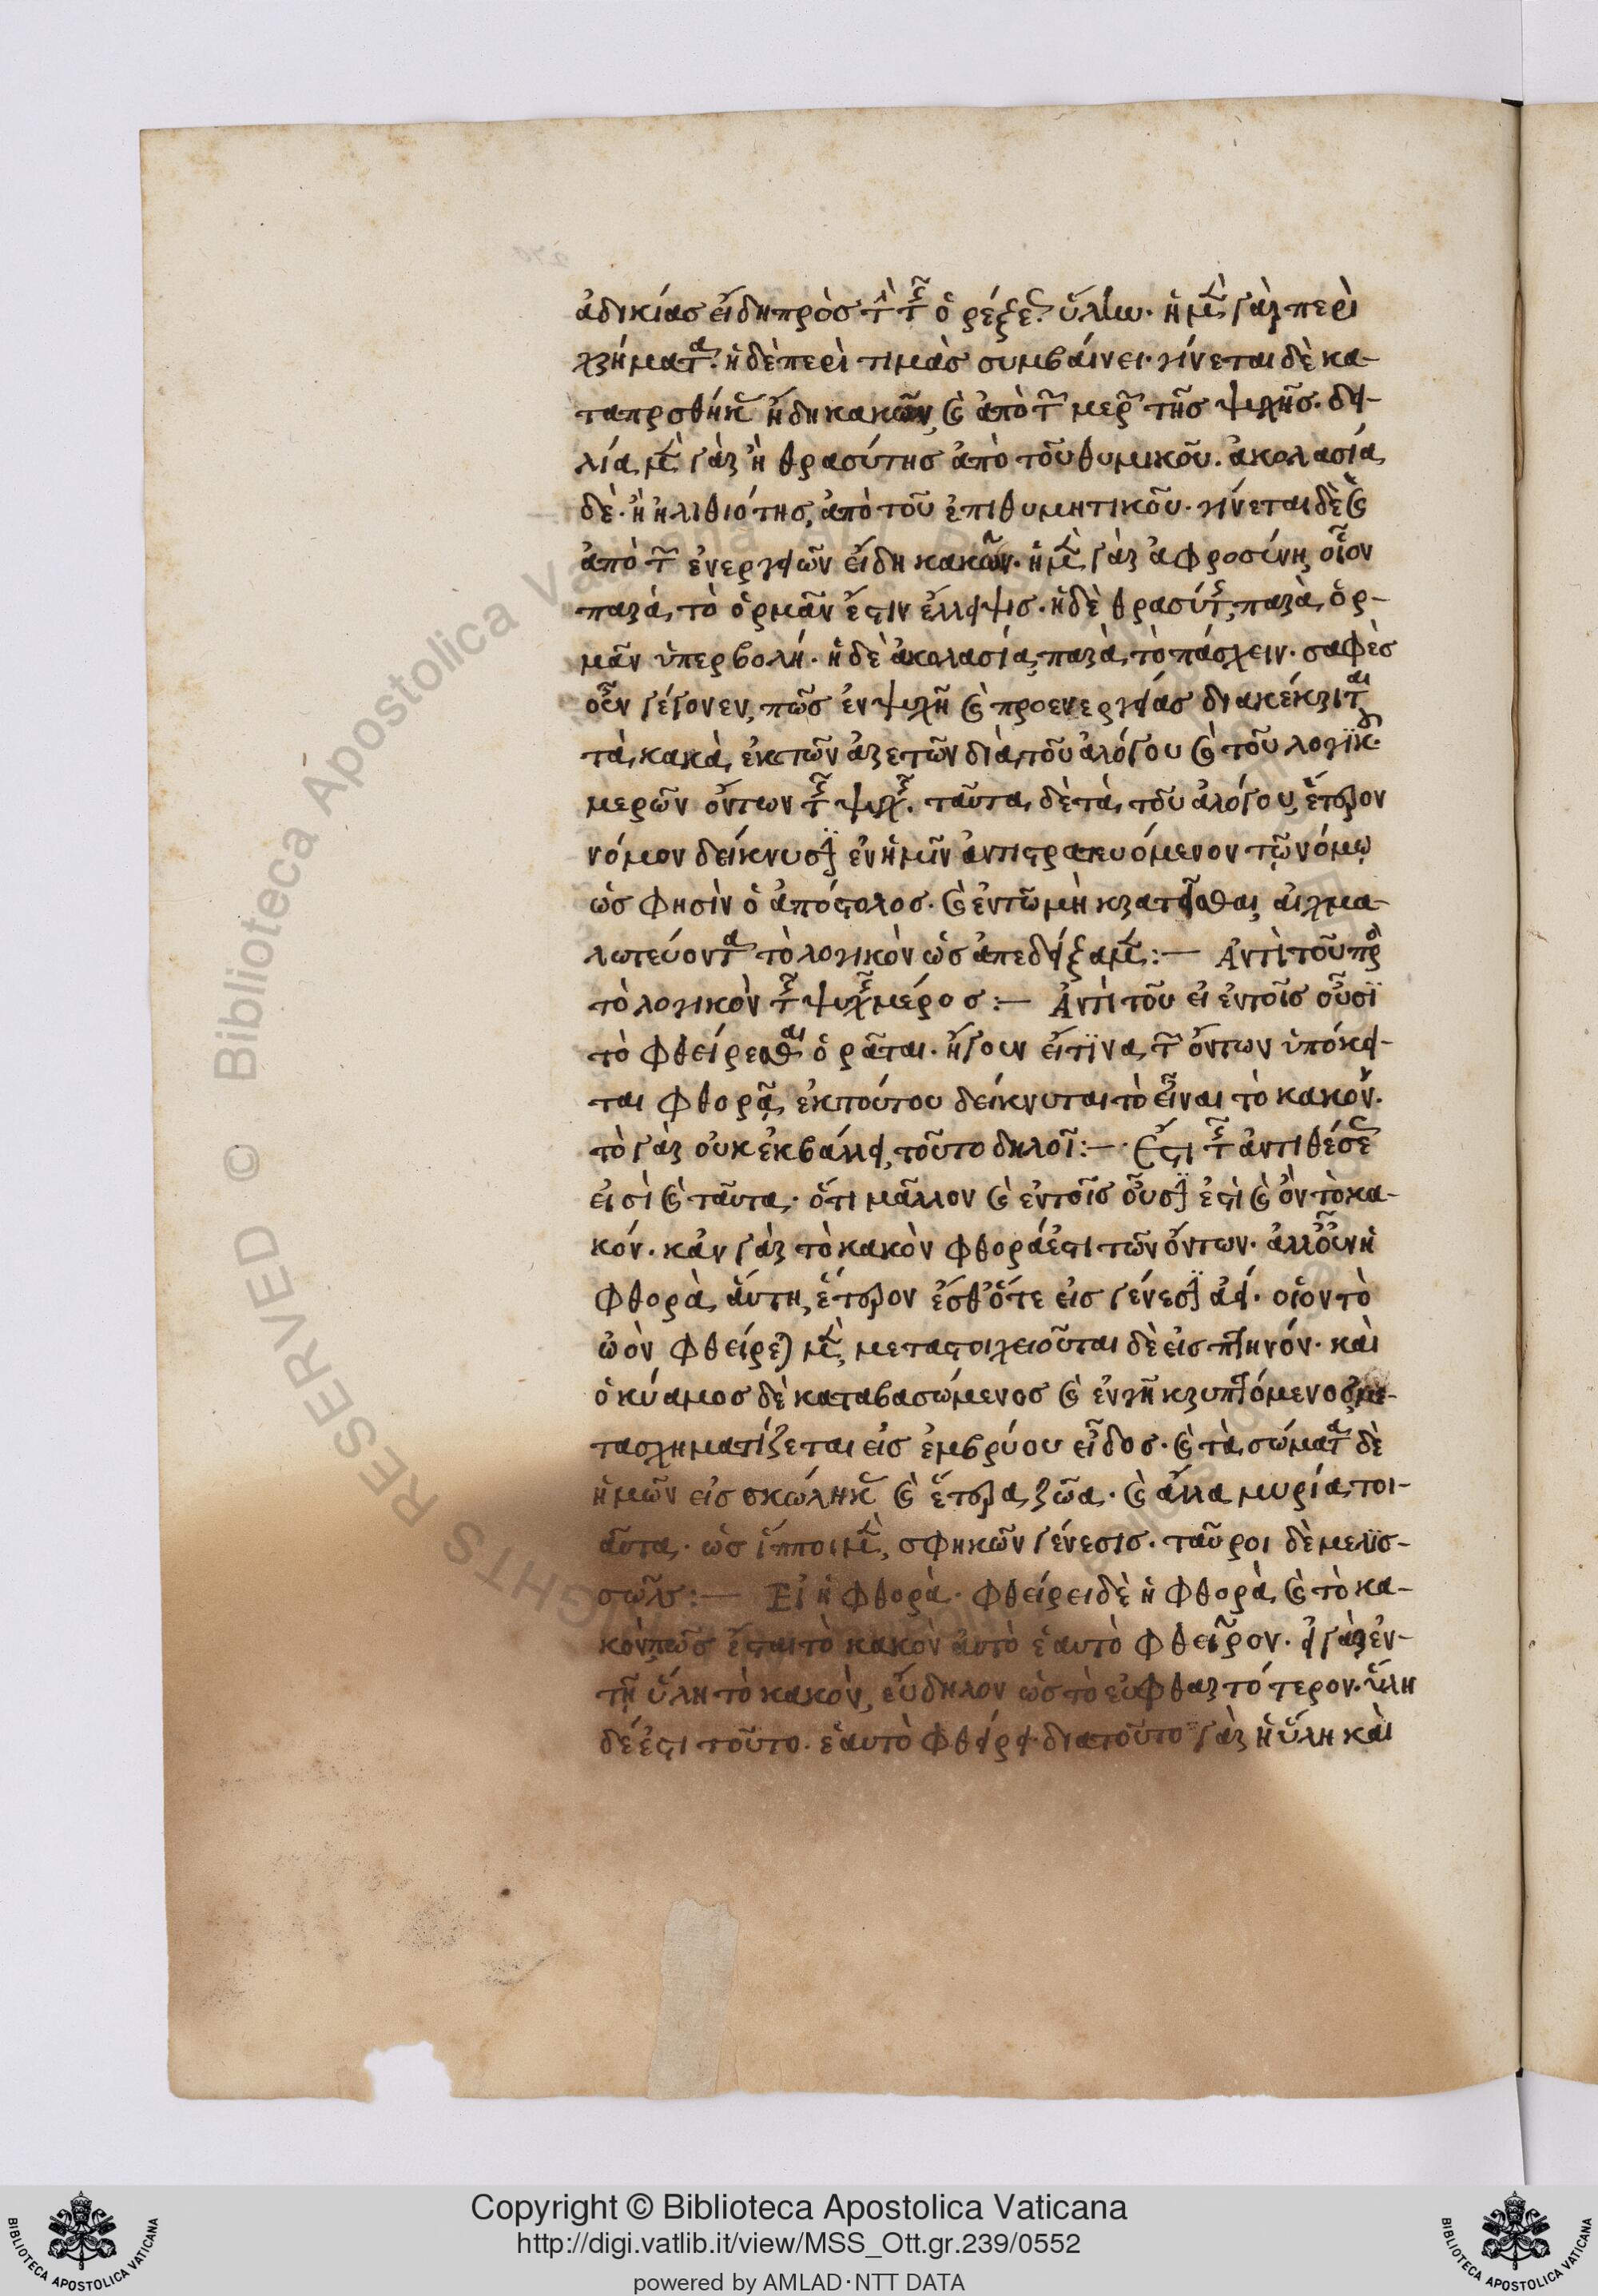 ἀδικίας εἴδη πρὸς τὴν τῆς ὀρέξεως ὕλην· ἡ μὲν γὰρ περὶ
χρήματα· ἡ δὲ περὶ τιμὰς συμβαίνει· γίνεται δὲ κα-
ταπροσθήκην ἤδη κακῶν, καὶ ἀπὸ τῶν μερῶν τῆς ψυχῆς· δει-
λία μὲν γὰρ ἢ θρασύτης ἀπὸ τοῦ θυμικοῦ. ἀκολασία
δὲ· ἢ ἠλιθιότης, ἀπὸ τοῦ ἐπιθυμητικοῦ· γίνεται δὲ καὶ
ἀπὸ τῶν ἐνεργειῶν εἴδη κακῶν· ἡ μὲν γὰρ ἀφροσύνη οἷον
παρὰ τὸ ὁρμᾶν ἔστιν ἔλλειψις· ἡ δὲ θρασύτης, παρὰ ὁρ-
μᾶν ὑπερβολή· ἡ δὲ ἀκολασία παρὰ τὸ πάσχειν· σαφὲς
οὖν γέγονεν, πῶς ἐν ψυχῇ καὶ προενεργείας διακέκριται
τὰ κακὰ ἐκ τῶν ἀρετῶν διὰ τοῦ ἀλόγου καὶ τοῦ λογικοῦ
μερῶν ὄντων τῆς ψυχῆς. ταῦτα δὲ τὰ τοῦ ἀλόγου, ἕτερον
νόμον δείκνυσιν ἐν ἡμῖν ἀντιστρατευόμενον τῷ νόμῳ
ὡς φησὶν ὁ ἀπόστολος· καὶ ἐν τῷ μὴ κρατεῖσθαι αἰχμα-
λωτεύοντα τὸ λογικὸν ὡς ἀπεδείξαμεν:— Ἀντὶ τοῦ πρὸς
τὸ λογικὸν τῆς ψυχῆς μέρος:— Ἀντὶ τοῦ εἰ ἐν τοῖς οὖσϊ
τὸ φθείρεσθαι ὁρᾶται· ἤγουν εἴ τϊνα τῶν ὄντων ὑπόκει-
ται φθορᾷ, ἐκ τούτου δείκνυται τὸ εἶναι τὸ κακόν.
τὸ γὰρ οὐκ ἐκβάλλει, τοῦτο δηλοῖ:— Ἔτι τῆς ἀντιθέσεως
εἰσὶ καὶ ταῦτα· ὅτι μᾶλλον καὶ ἐν τοῖς οὖσιν ἐστὶ καὶ ὂν τὸ κα-
κόν· κἂν γὰρ τὸ κακὸν φθορά ἐστι τῶν ὄντων· ἀλλ' οὖν ἡ
φθορὰ αὕτη, ἕτερον ἔσθ' ὅτε εἰς γένεσιν ἄγει· οἷον τὸ
ὠὸν φθείρεται μὲν, μεταστοιχειοῦται δὲ εἰς πτηνόν· καὶ
ὁ κύαμος δὲ καταβασώμενος καὶ ἐν γῇ κρυπτόμενος, με-
τασχηματίζεται εἰς ἐμβρύου εἶδος· καὶ τὰ σώματα δὲ
ἡμῶν εἰς σκώληκας καὶ ἕτερα ζῶα· καὶ ἄλλα μυρία τοι-
αῦτα· ὡς ἵπποι μὲν, σφηκῶν γένεσις· ταῦροι δὲ μελϊσ-
σῶν:— Εἰ ἡ φθορὰ· φθείρει δὲ ἡ φθορὰ καὶ τὸ κα-
κὸν, πῶς ἔσται τὸ κακὸν αὐτὸ ἑαυτὸ φθεῖρον· εἰ γὰρ ἐν
τῇ ὕλῃ τὸ κακὸν, εὔδηλον ὡς τὸ εὐφθαρτότερον· ὕλη
δέ ἐστι τοῦτο· ἑαυτὸ φθείρει· διατοῦτο γὰρ ἡ ὕλη καὶ
Copyright © Biblioteca Apostolica Vaticana
http://digi.vatlib.it/view/MSS_Ott.gr.239/0552
powered by AMLAD·NTT DATA